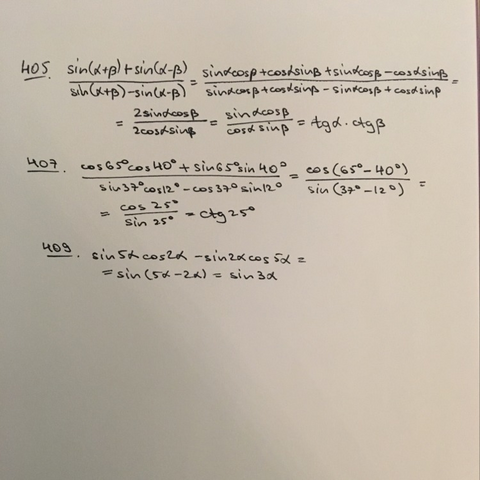 405. (sin(α+β)+sin(α-β))/(sin(α+β)-sin(α-β)) = (sinαcosβ+cosαsinβ+sinαcosβ-cosαsinβ)/(sinαcosβ+cosαsinβ-sinαcosβ+cosαsinβ) =
= 2sinαcosβ/2cosαsinβ = sinαcosβ/cosαsinβ = tgα·ctgβ
407. (cos65°cos40°+sin65°sin40°)/(sin37°cos12°-cos37°sin12°) = cos(65°-40°)/sin(37°-12°) =
= cos25°/sin25° = ctg25°
409. sin5αcos2α-sin2αcos5α =
= sin(5α-2α) = sin3α